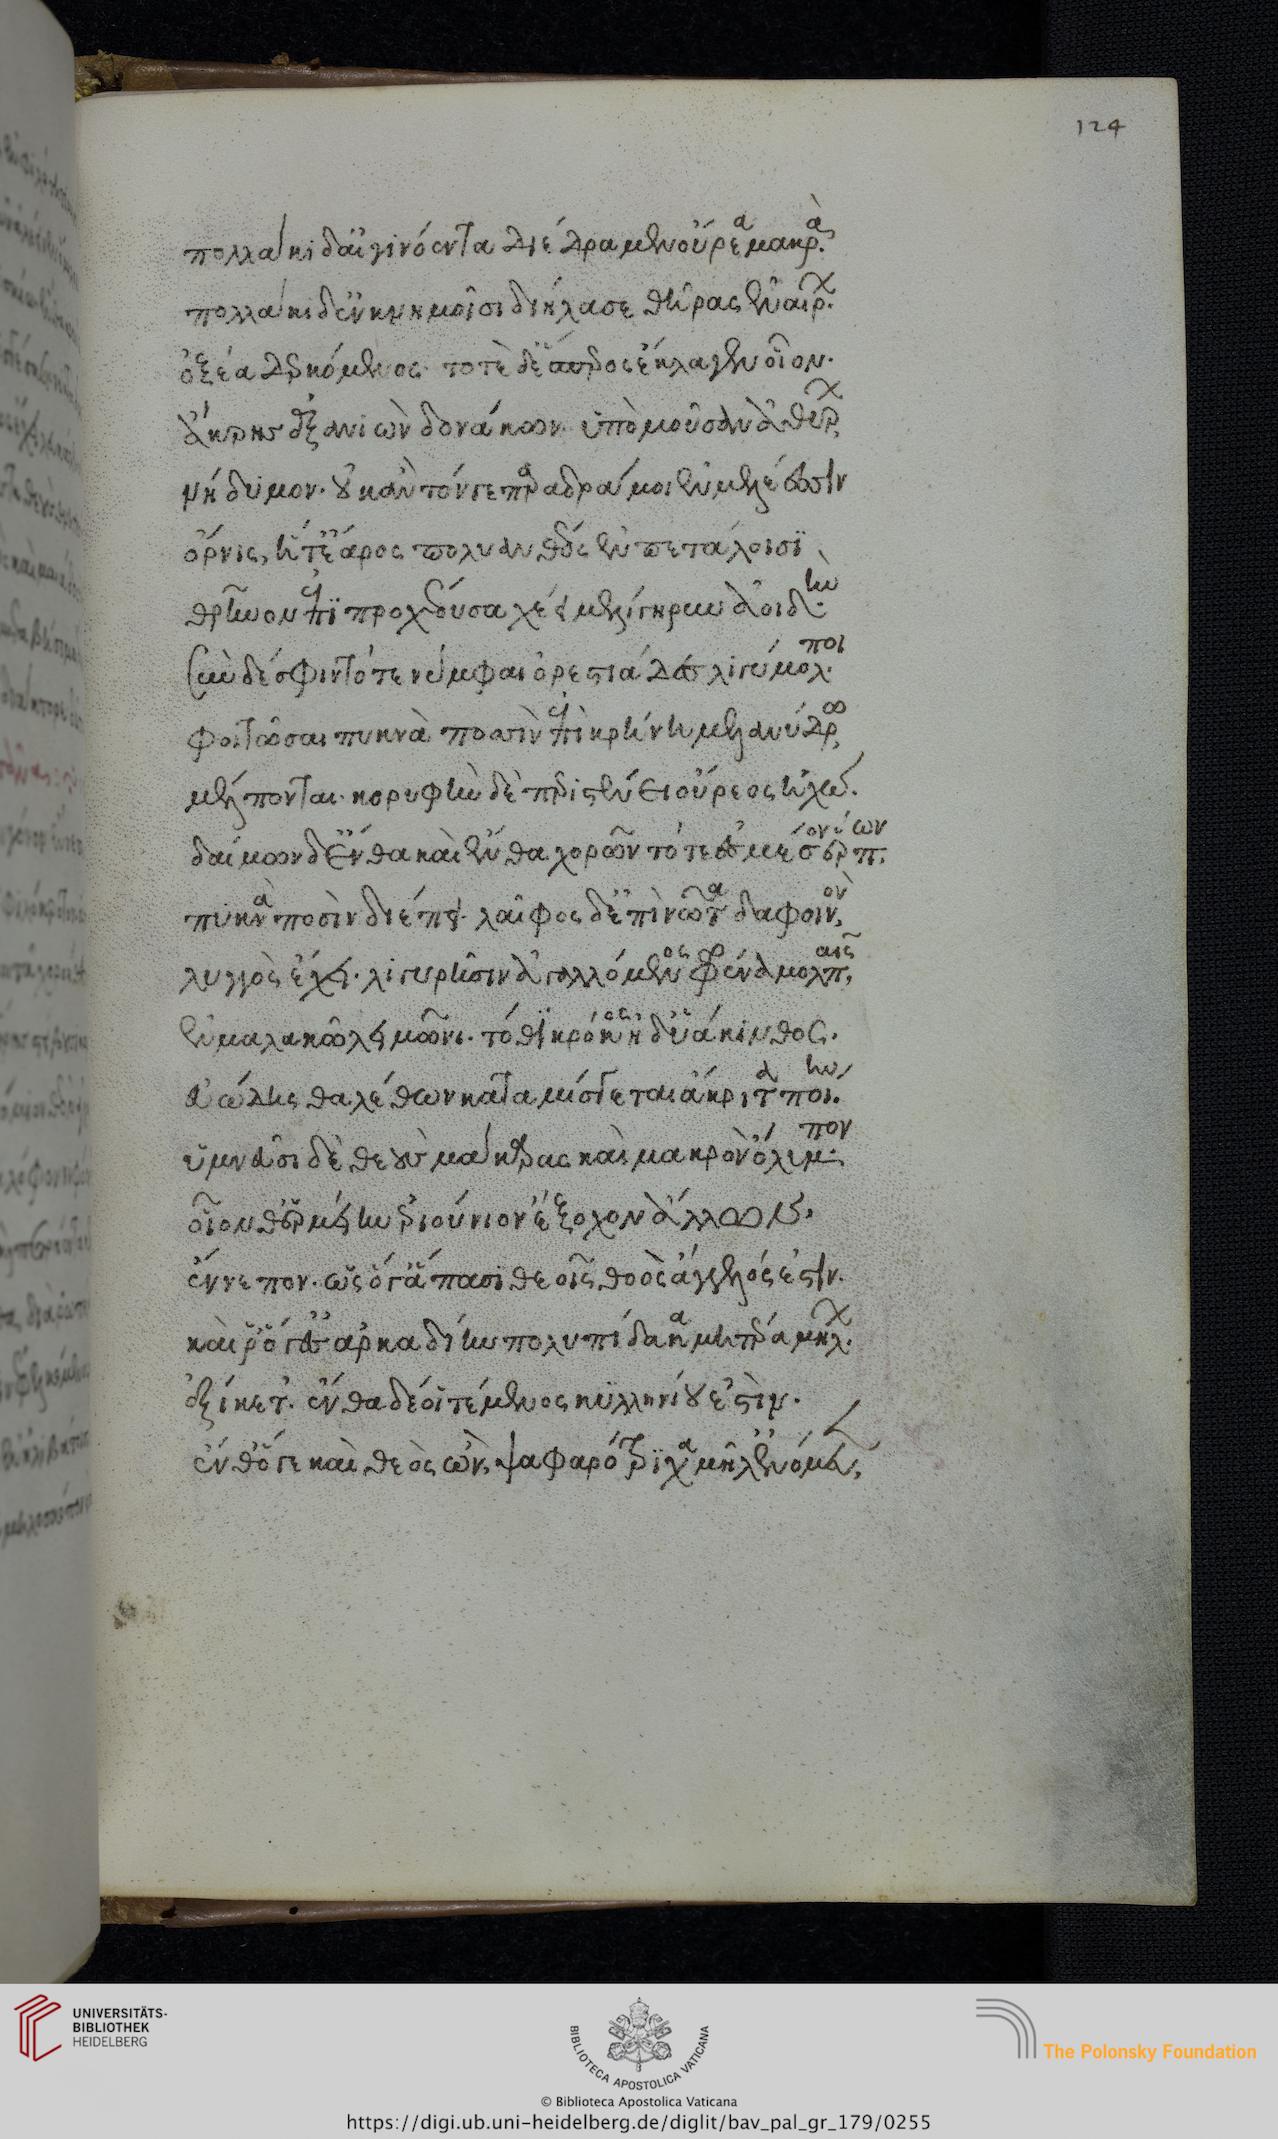 124
πολλάκι δ' αἰγινόεντα διέδραμεν οὔρεα μακρὰ.
πολλάκι δ' ἐν κνημοῖσι διήλασε θῆρας ἐναίρων.
ὀξέα δερκόμενος· τοτὲ δ' ἕσπερος ἔκλαγεν οἶον.
ἄκρης ἐξανιὼν δονάκων ὑπὸ μοῦσαν ἀθύρων
νήδυμον· οὐκ ἂν τόνγε παραδράμοι ἐν μελέεσσιν
ὄρνις, ἥτ' ἔαρος πολυανθέος ἐν πετάλοισϊ
θρῆνον ἐπϊπροχέουσα χέει μελίγηρυν ἀοιδήν.
σὺν δέ σφιν τότε νύμφαι ὀρεστιάδες λιγύμολποι
φοιτῶσαι πυκνὰ ποσσὶν ἐπὶ κρήνη μελανύδρω
μέλπονται· κορυφὴν δὲ περιστένει οὔρεος ἠχώ.
δαίμων δ' ἔνθα καὶ ἔνθα χορῶν τότε ἐς μέσον ἕρπων.
πυκνὰ ποσὶν διέπει· λαῖφος δ' ἐπὶ νῶτα δαφοινὸν,
λυγγὸς ἔχει· λιγυρῆσιν ἀγαλλόμενος φρένα μολπαῖς,
ἐν μαλακῶ λειμῶνι· τόθι κρόκος ἠδ' ὑάκινθος.
εὐώδης θαλέθων καταμίσγεται ἄκριτα ποίην.
ὑμνεῦσι δὲ θεοὺς μάκαρας καὶ μακρὸν ὄλυμπον·
οἷον θ' ἑρμείην ἐριούνιον ἔξοχον ἄλλων.
ἔννεπον. ὡς ὅγ' ἅπασι θεοῖς θοὸς ἄγγελός ἐστιν.
καὶ ῥ' ὅγ' ἐς ἀρκαδίην πολυπίδακα μητέρα μήλων.
ἐξίκετ'. ἔνθα δέ οἱ τέμενος κυλληνίου ἐστὶν.
ἔνθ' ὅγε καὶ θεὸς ὢν, ψαφαρότριχα μῆλ' ἐνόμευεν,
UNIVERSITÄTS-
BIBLIOTHEK
HEIDELBERG
BIBLIOTECA APOSTOLICA VATICANA
© Biblioteca Apostolica Vaticana
The Polonsky Foundation
https://digi.ub.uni-heidelberg.de/diglit/bav_pal_gr_179/0255